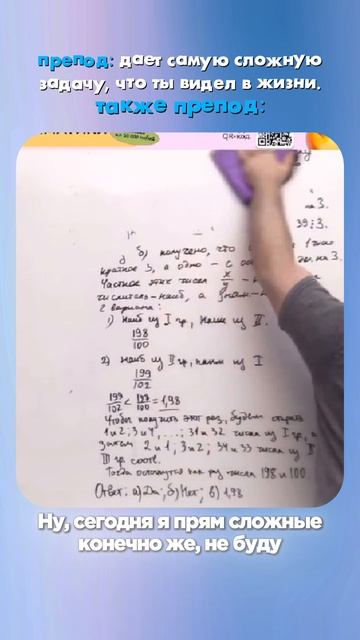 препод: дает самую сложную
задачу, что ты видел в жизни.
также препод:
QR-код
на 3.
39; 3.
б) получено, что
1 число
кратное 3, а одно – с
на 3.
Частное этих чисел x/y –
числитель – наиб, а знам –
2 варианта:
1) наиб из I гр, наим из II.
198/100
2) наиб из II гр, наим из I
199/102
199/102 < 198/100 = 1,98
Чтобы получить этот раз, будем стирать
1 и 2; 3 и 4, ...; 31 и 32 числа из I гр, а
затем 2 и 1; 3 и 2; 34 и 33 числа из II
III гр соотв.
Тогда останутся как раз числа 198 и 100
Ответ: а) Да; б) Нет; в) 1,98
Ну, сегодня я прям сложные
конечно же, не буду